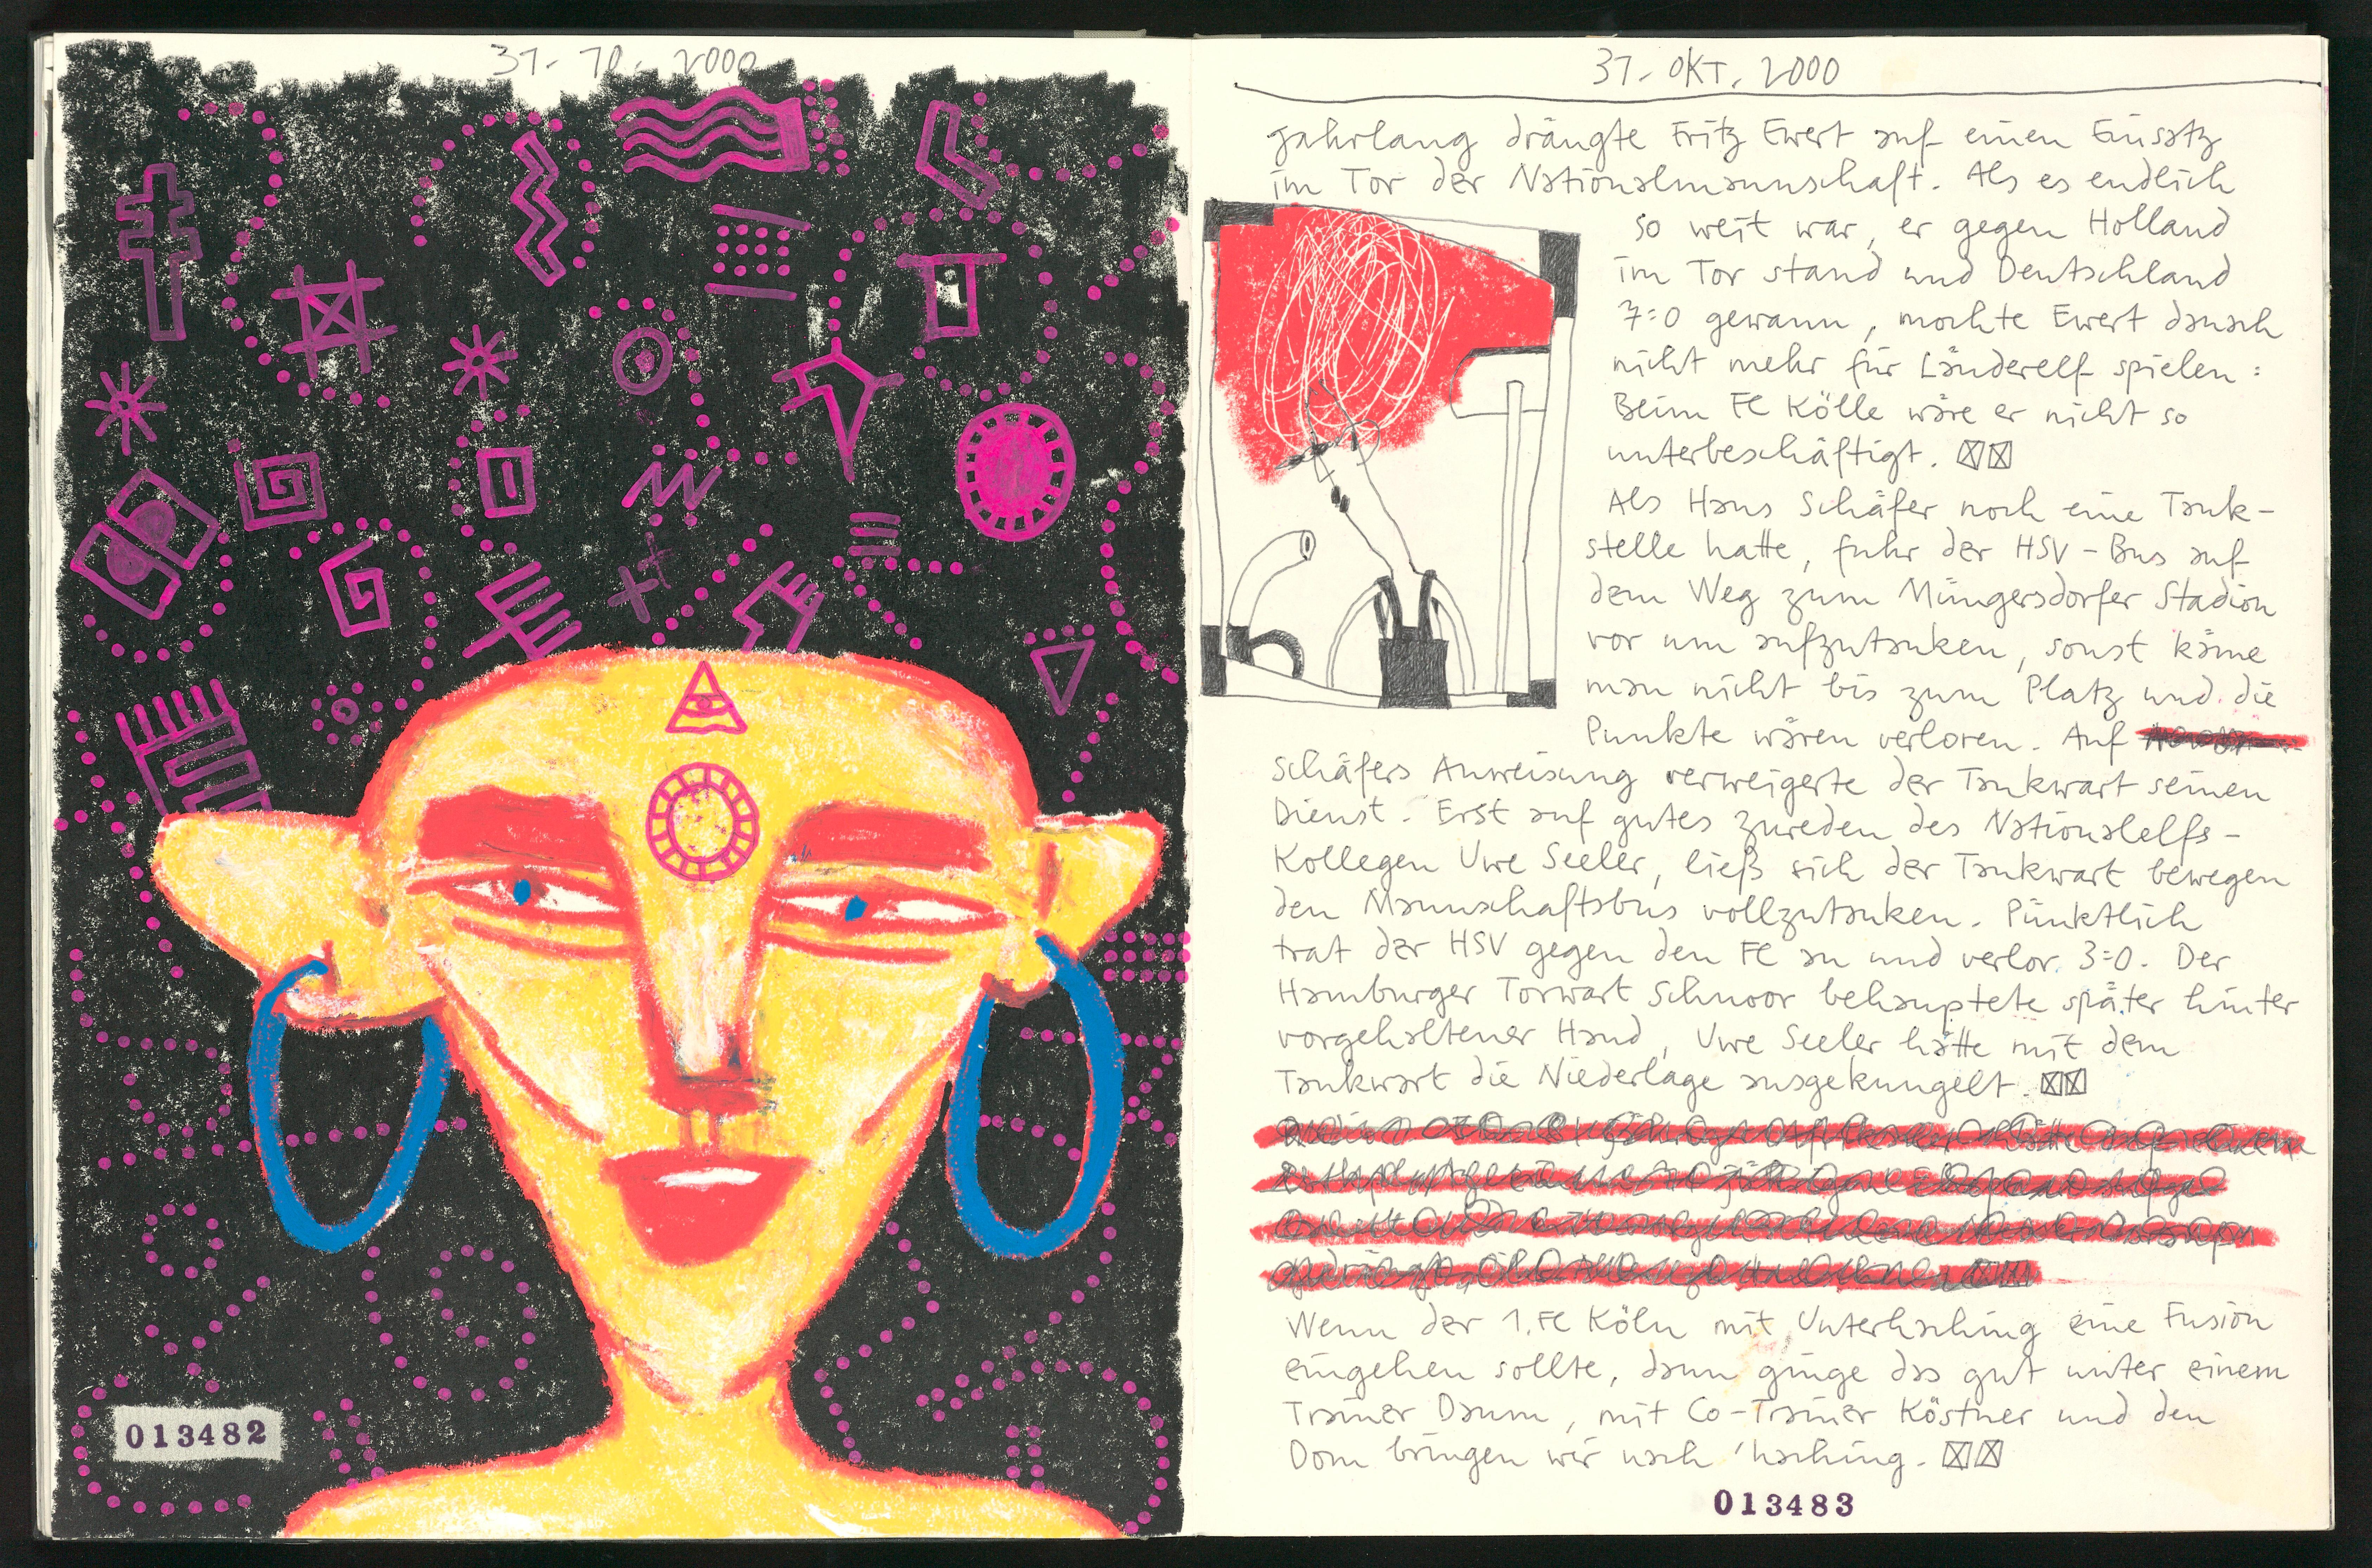 31. 10. 2000
013482
31. OKT. 2000
jahrlang drängte Fritz Ewert auf einen Einsatz
im Tor der Nationalmannschaft. Als es endlich
so weit war, er gegen Holland
im Tor stand und Deutschland
7:0 gewann, mochte Ewert danach
nicht mehr für Länderelf spielen:
Beim FC Kölle wäre er nicht so
unterbeschäftigt.
Als Hans Schäfer noch eine Tank-
stelle hatte, fuhr der HSV-Bus auf
dem Weg zum Müngersdorfer Stadion
vor um aufzutanken, sonst käme
man nicht bis zum Platz und die
Punkte wären verloren. Auf
Schäfers Anweisung verweigerte der Tankwart seinen
Dienst. Erst auf gutes zureden des Nationalelfs-
Kollegen Uwe Seeler, ließ sich der Tankwart bewegen
den Mannschaftsbus vollzutanken. Pünktlich
trat der HSV gegen den FC an und verlor 3:0. Der
Hamburger Torwart Schnoor behauptete später hinter
vorgehaltener Hand, Uwe Seeler hätte mit dem
Tankwart die Niederlage ausgekungelt.
Wenn der 1.FC Köln mit Unterhaching eine Fusion
eingehen sollte, dann ginge das gut unter einem
Trainer Daum, mit Co-Trainer Köstner und den
Dom bringen wir nach 'haching.
013483